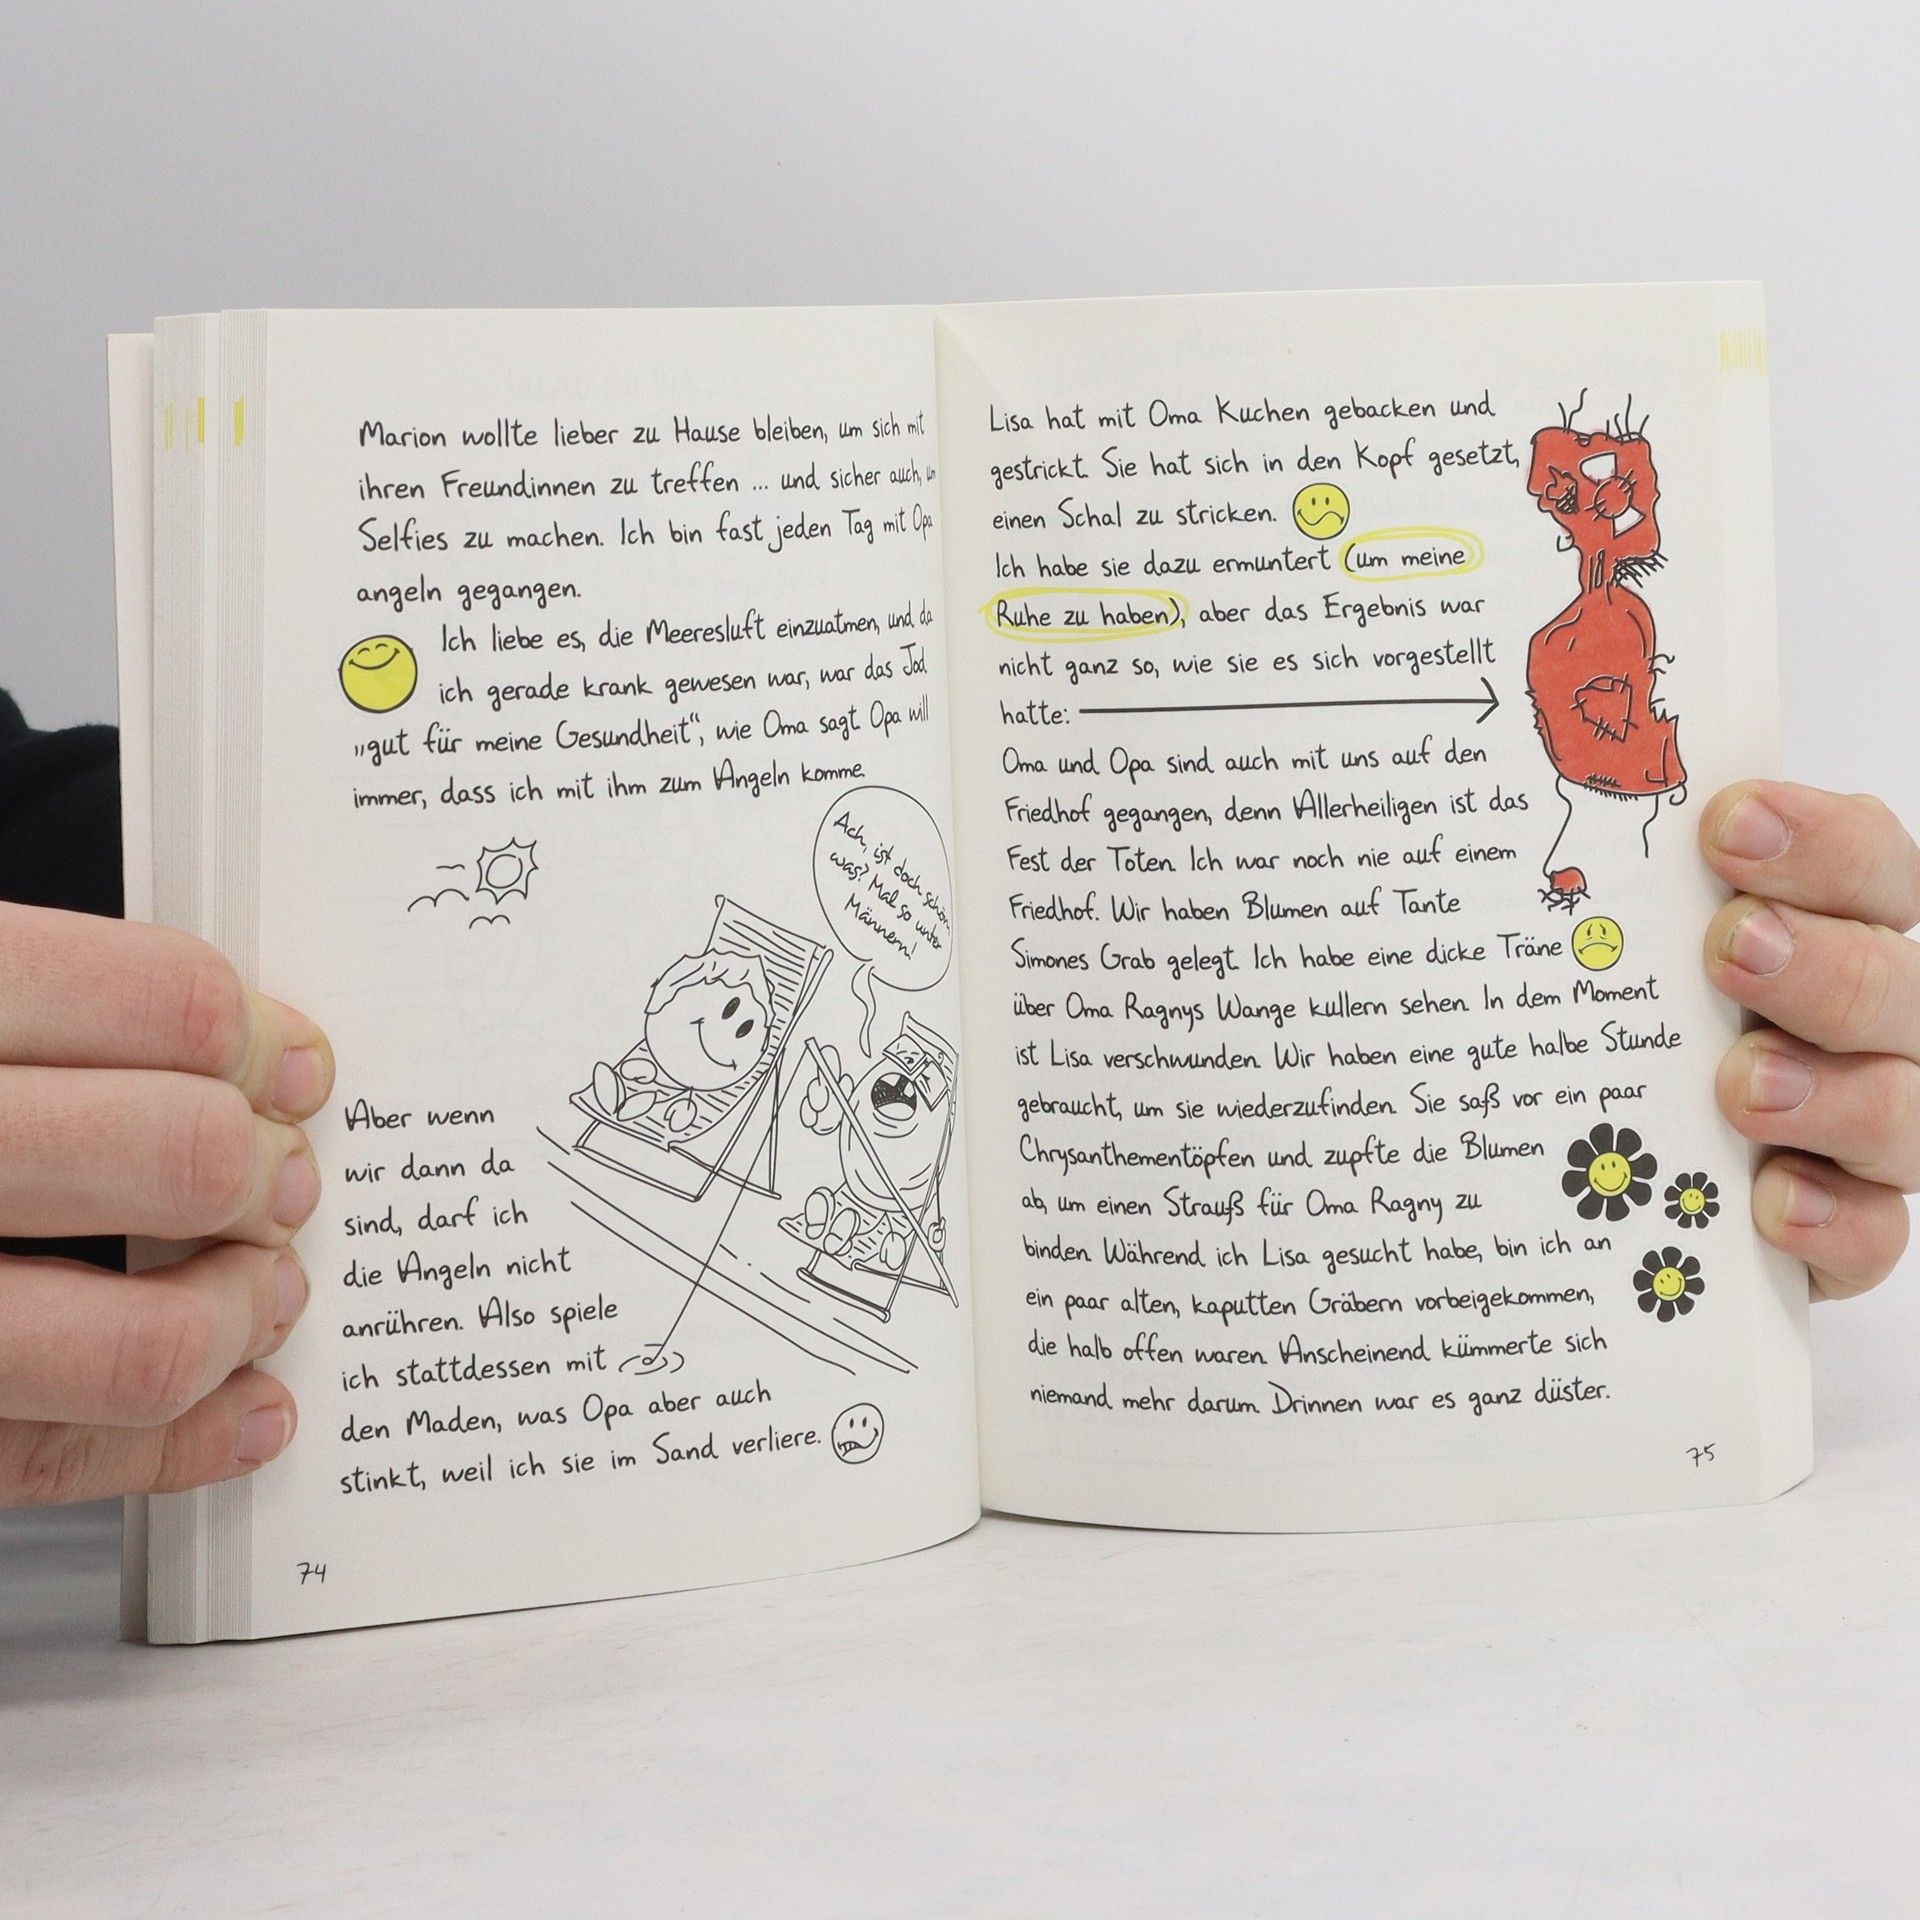 Marion wollte lieber zu Hause bleiben, um sich mit
ihren Freundinnen zu treffen ... und sicher auch, um
Selfies zu machen. Ich bin fast jeden Tag mit Opa
angeln gegangen.
Ich liebe es, die Meeresluft einzuatmen, und da
ich gerade krank gewesen war, war das Jod
„gut für meine Gesundheit“, wie Oma sagt. Opa will
immer, dass ich mit ihm zum Angeln komme.
Ach, ist doch schön,
was? Mal so unter
Männern!
Aber wenn
wir dann da
sind, darf ich
die Angeln nicht
anrühren. Also spiele
ich stattdessen mit
den Maden, was Opa aber auch
stinkt, weil ich sie im Sand verliere.
74
Lisa hat mit Oma Kuchen gebacken und
gestrickt. Sie hat sich in den Kopf gesetzt,
einen Schal zu stricken.
Ich habe sie dazu ermuntert (um meine
Ruhe zu haben), aber das Ergebnis war
nicht ganz so, wie sie es sich vorgestellt
hatte:
Oma und Opa sind auch mit uns auf den
Friedhof gegangen, denn Allerheiligen ist das
Fest der Toten. Ich war noch nie auf einem
Friedhof. Wir haben Blumen auf Tante
Simones Grab gelegt. Ich habe eine dicke Träne
über Oma Ragnys Wange kullern sehen. In dem Moment
ist Lisa verschwunden. Wir haben eine gute halbe Stunde
gebraucht, um sie wiederzufinden. Sie saß vor ein paar
Chrysanthementöpfen und zupfte die Blumen
ab, um einen Strauß für Oma Ragny zu
binden. Während ich Lisa gesucht habe, bin ich an
ein paar alten, kaputten Gräbern vorbeigekommen,
die halb offen waren. Anscheinend kümmerte sich
niemand mehr darum. Drinnen war es ganz düster.
75